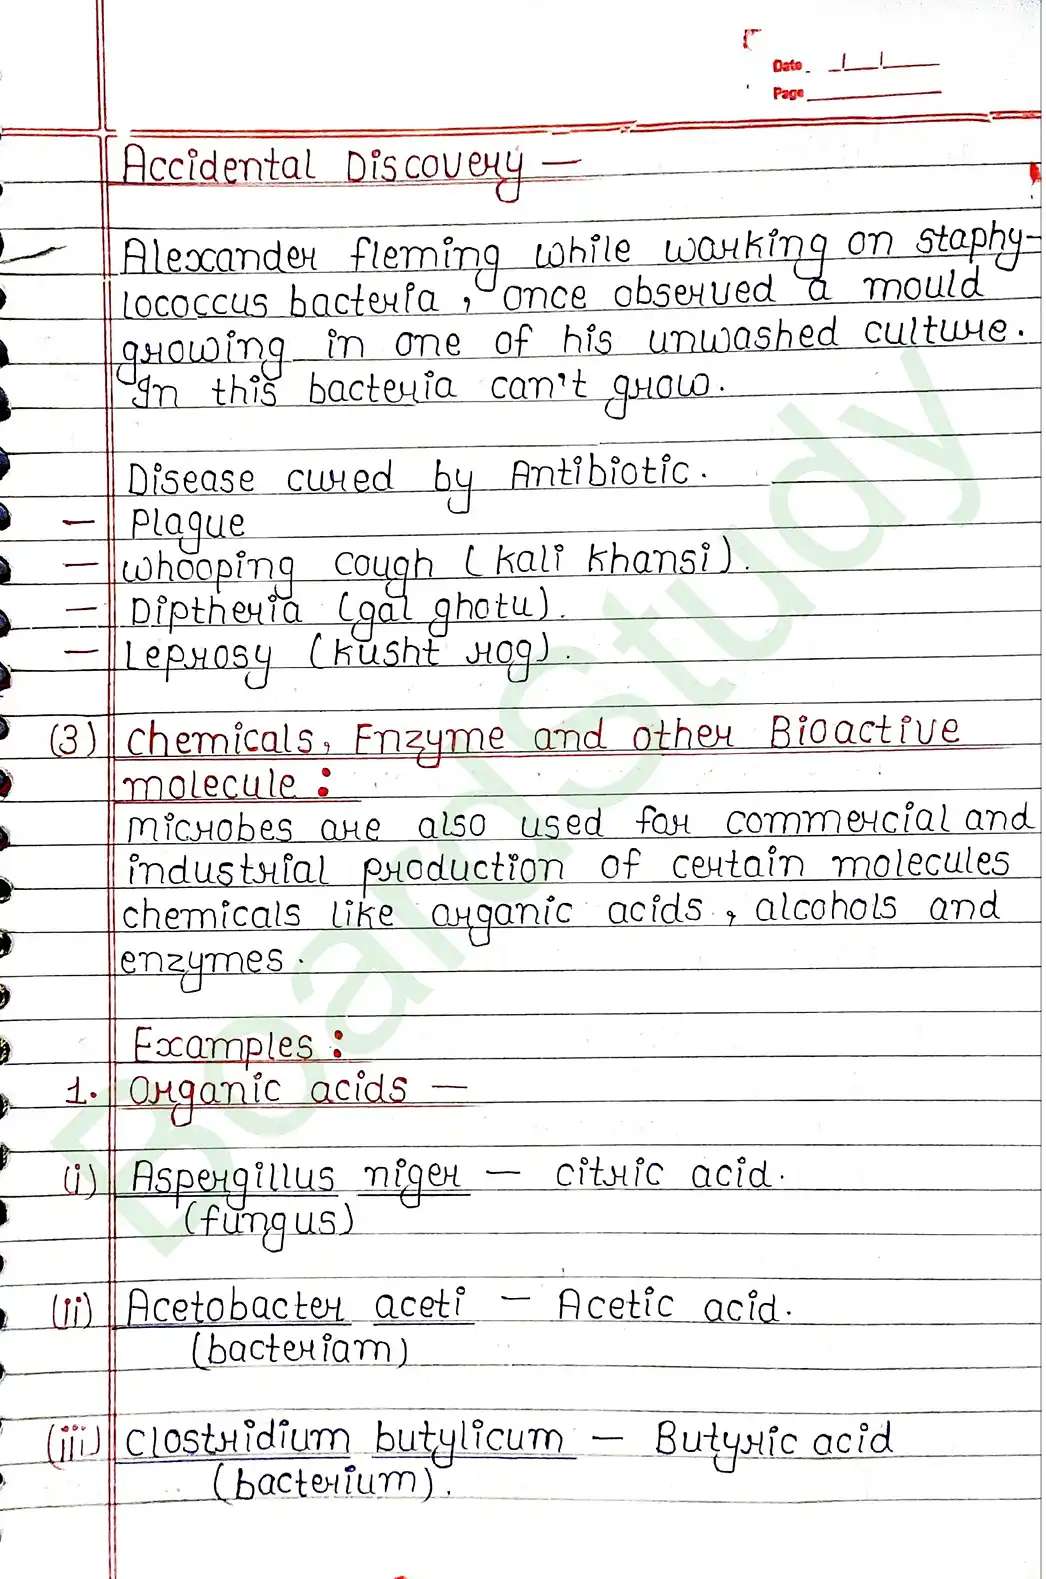 Date
Page
Accidental Discovery —
Alexander fleming while working on staphy-
lococcus bacteria, once observed a mould
growing in one of his unwashed culture.
In this bacteria can't grow.
Disease cured by Antibiotic.
— Plague
— whooping cough (kali khansi).
— Diptheria (gal ghotu).
— Leprosy (kusht rog).
(3) chemicals, Enzyme and other Bioactive
molecule :
microbes are also used for commercial and
industrial production of certain molecules
chemicals like organic acids, alcohols and
enzymes.
Examples :
1. Organic acids —
(i) Aspergillus niger — citric acid.
(fungus)
(ii) Acetobacter aceti — Acetic acid.
(bacteriam)
(iii) clostridium butylicum — Butyric acid
(bacterium).
BoardStudy